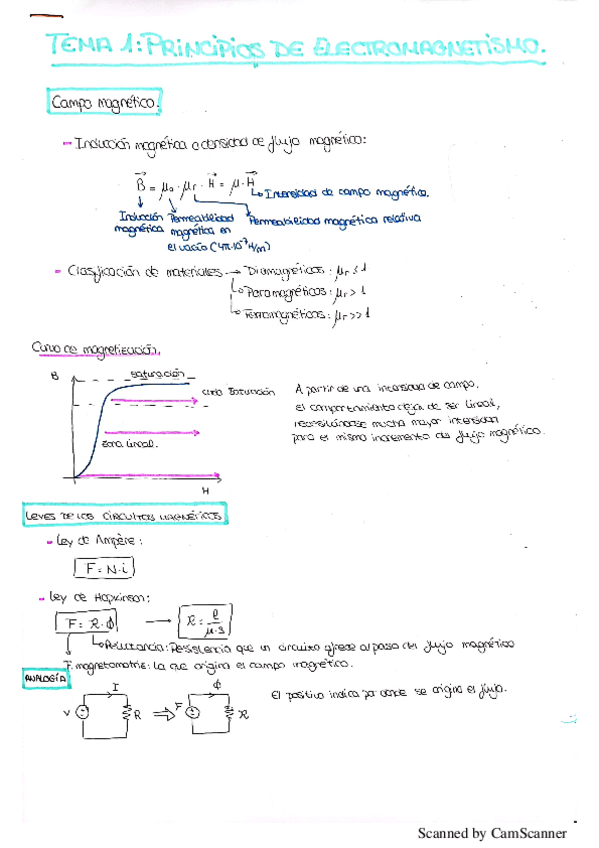 TEMA 1: PRINCIPIOS DE ELECTROMAGNETISMO.
Campo magnético.
- Inducción magnética o densidad de flujo magnético:
B = μ₀ · μr · H = μ · H
Intensidad de campo magnético.
Inducción magnética
Permeabilidad magnética en el vacío (4π·10⁻⁷ H/m)
Permeabilidad magnética relativa
- Clasificación de materiales → Diamagnéticos: μr ≤ 1
Paramagnéticos: μr > 1
Ferromagnéticos: μr >> 1
Curva de magnetización.
B
saturación
zona lineal.
H
A partir de una intensidad de campo,
el comportamiento deja de ser lineal,
necesitándose mucha mayor intensidad
para el mismo incremento de flujo magnético.
LEYES DE LOS CIRCUITOS MAGNÉTICOS
- Ley de Ampère:
F = N·i
- Ley de Hopkinson:
F = R·ϕ → R = l / μ·S
Reluctancia: Resistencia que un circuito ofrece al paso del flujo magnético
F. magnetomotriz: la que origina el campo magnético.
ANALOGÍA
I
V
R
⇒
ϕ
F
R
El positivo indica por donde se origina el flujo.
Scanned by CamScanner